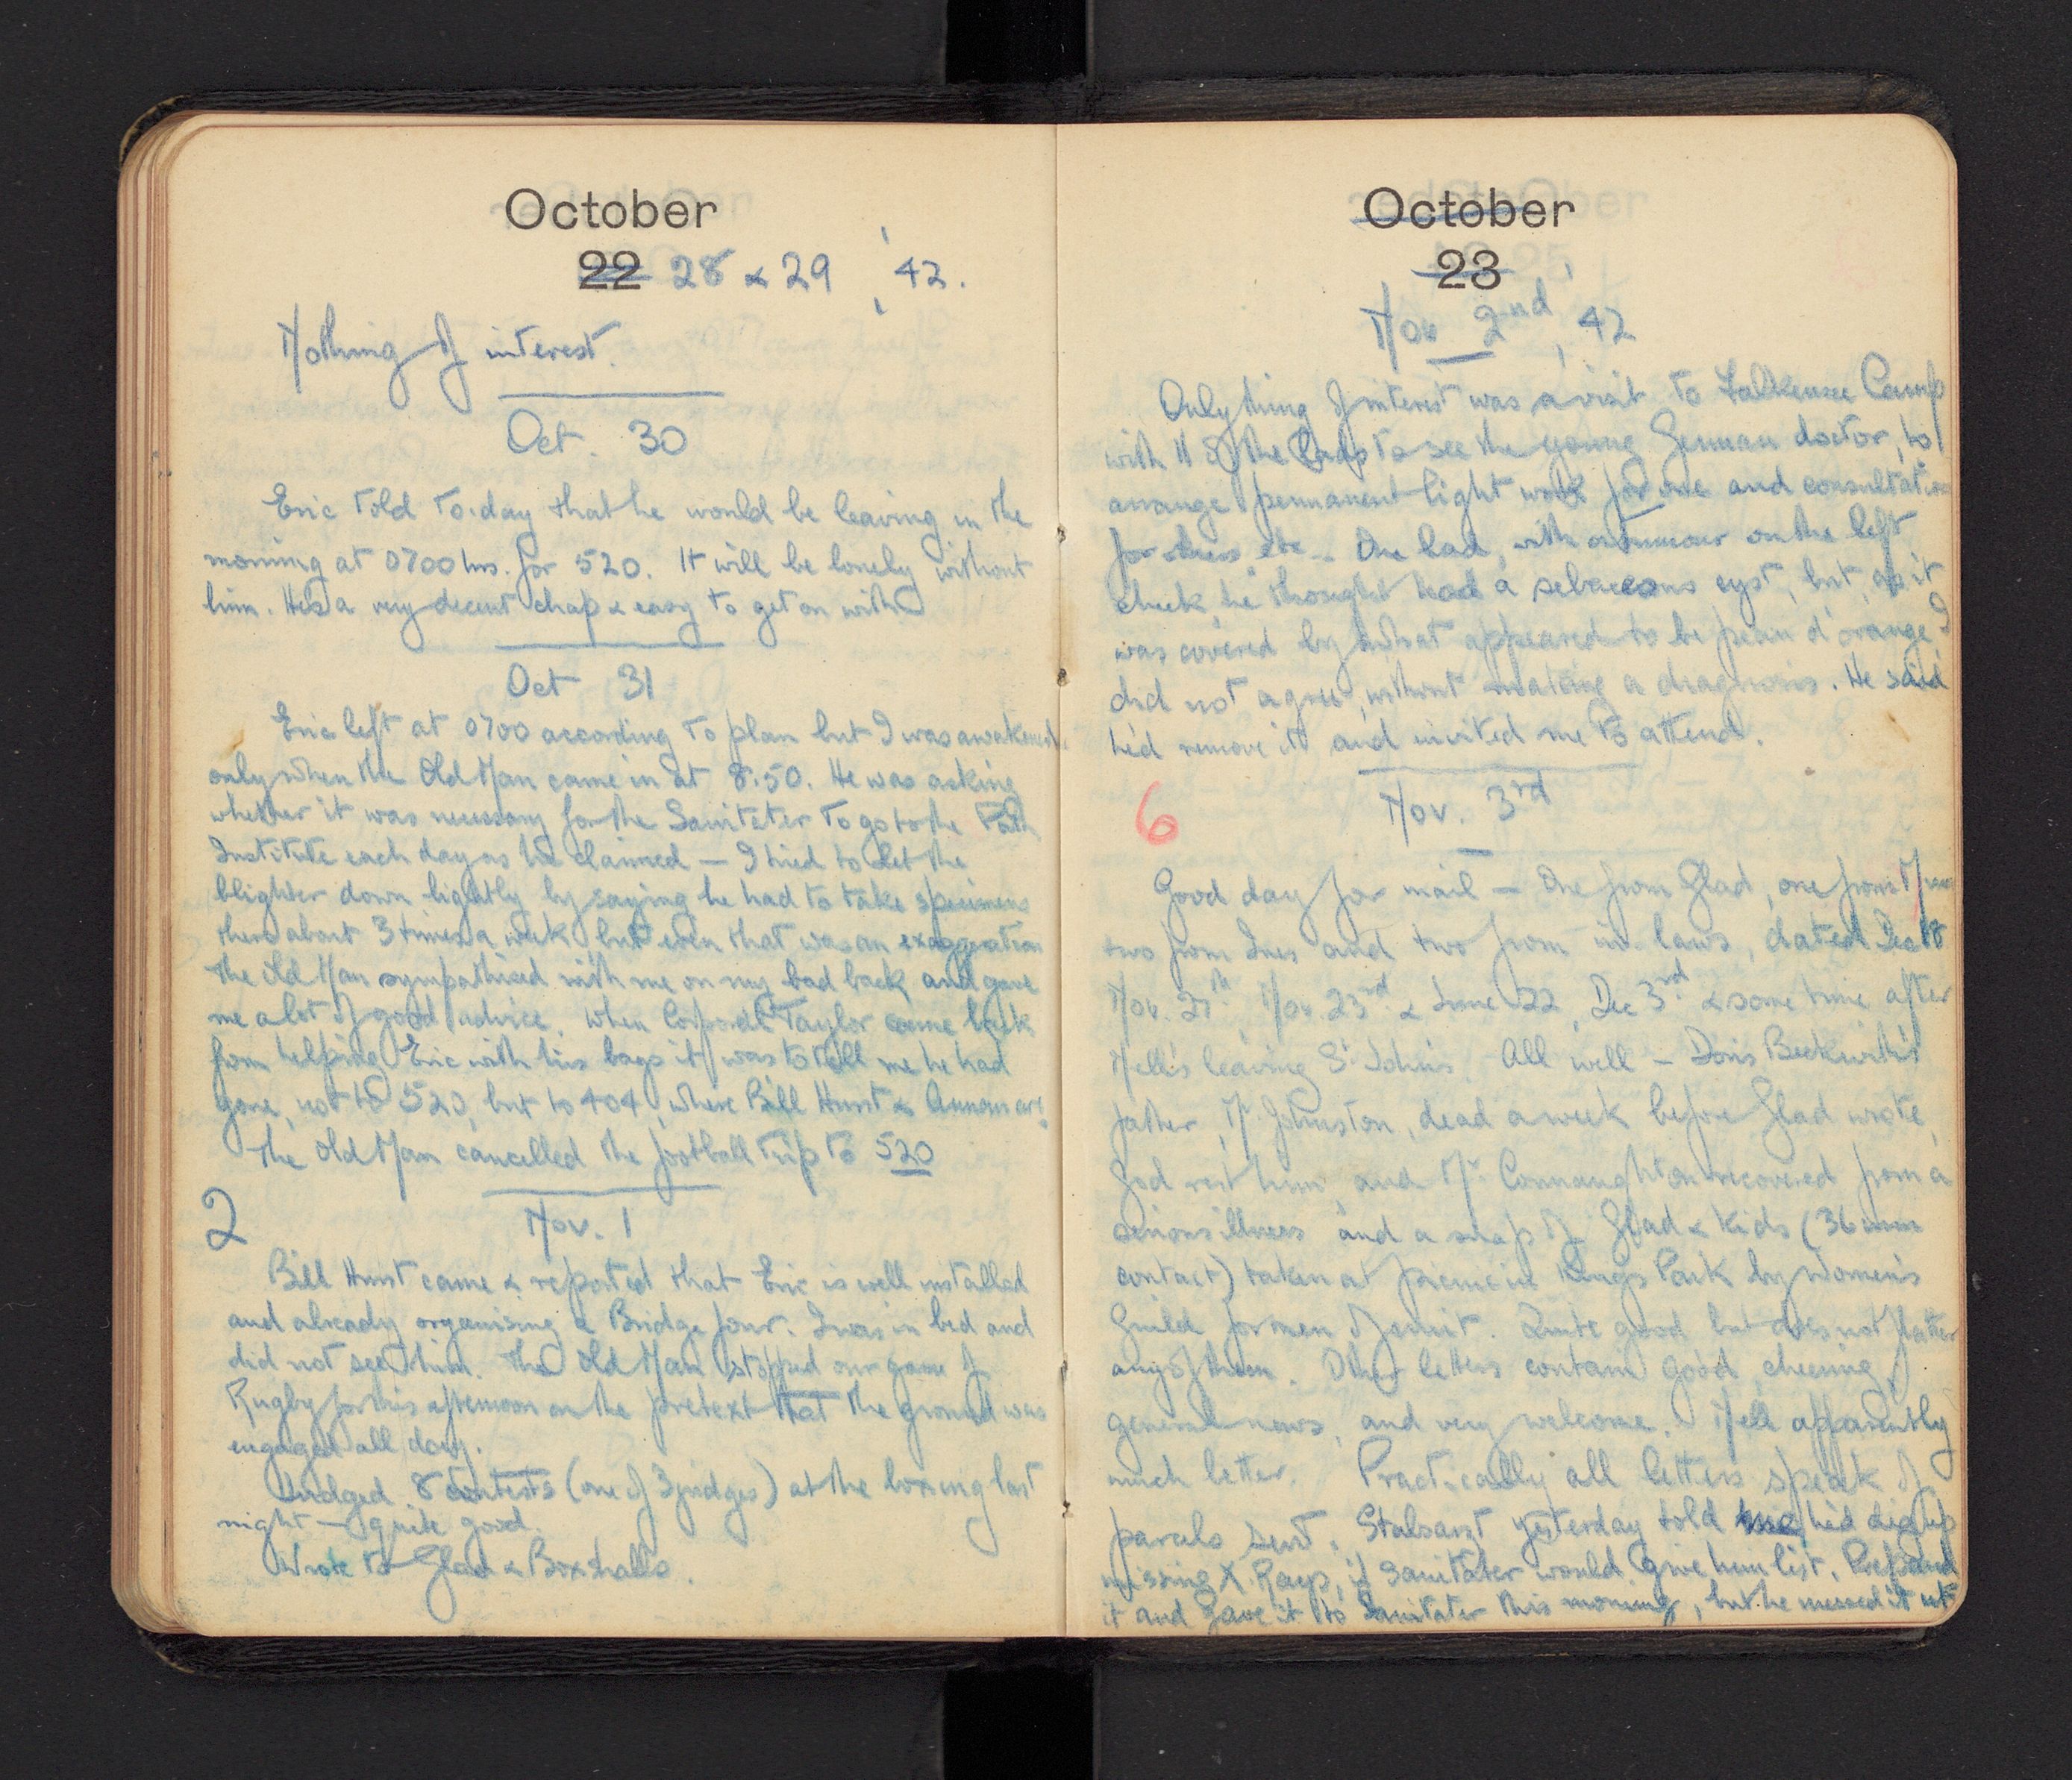 October
22 28 & 29 '42.
Nothing of interest.
Oct. 30
Eric told to-day that he would be leaving in the
morning at 0700 hrs. for 520. It will be lonely without
him. He's a very decent chap & easy to get on with
Oct 31
Eric left at 0700 according to plan but I was awakened
only when the Old Man came in at 8.50. He was asking
whether it was necessary for the Sanitater to go to the Path
Institute each day as he claimed — I tried to let the
blighter down lightly by saying he had to take specimens
there about 3 times a week, but even that was an exaggeration
The Old Man sympathised with me on my bad back and gave
me a lot of good advice. When Corporal Taylor came back
from helping Eric with his bags it was to tell me he had
gone, not to 520, but to 404, where Bill Hunt & are.
The Old Man cancelled the football trip to 520
2 Nov. 1
Bill Hunt came & reported that Eric is well installed
and already organising a Bridge four. I was in bed and
did not see him. The Old Man stopped our game of
Rugby for this afternoon on the pretext that the ground was
engaged all day.
Judged 8 contests (one of 3 judges) at the boxing last
night — quite good.
Wrote to Glad & Boxshalls.
October
23
Nov 2nd '42
Only thing of interest was a visit to Falkensee Camp
with 11 of the lads to see the young German doctor, to
arrange permanent light work for one and consultation
for others etc. One lad, with a tumour on the left
cheek he thought had a sebaceous cyst, but, as it
was covered by what appeared to be peau d'orange I
did not agree, without making a diagnosis. He said
he'd remove it and invited me to attend.
6 Nov. 3rd
Good day for mail — One from Glad, one from
two from Ines and two from in-laws, dated
Nov. Nov. 23rd & June 22, Dec 3rd & some time after
Nell's leaving St John's. All well — Doris Beckwith's
father, Mr Johnston, dead a week before Glad wrote,
God rest him, and Mr Connaughton recovered from a
serious illness and a snap of Glad & kids (36 mm
contact) taken at picnic in Kings Park by Women's
Guild for men of unit. Quite good but does not flatter
any of them. Other letters contain good, cheering,
general news, and very welcome. Nell apparently
much better. Practically all letters speak of
parcels sent. Stabsarzt yesterday told me he'd dig up
missing X-Rays, if Sanitater would give him list. Prepared
it and gave it to Sanitater this morning, but he messed it up